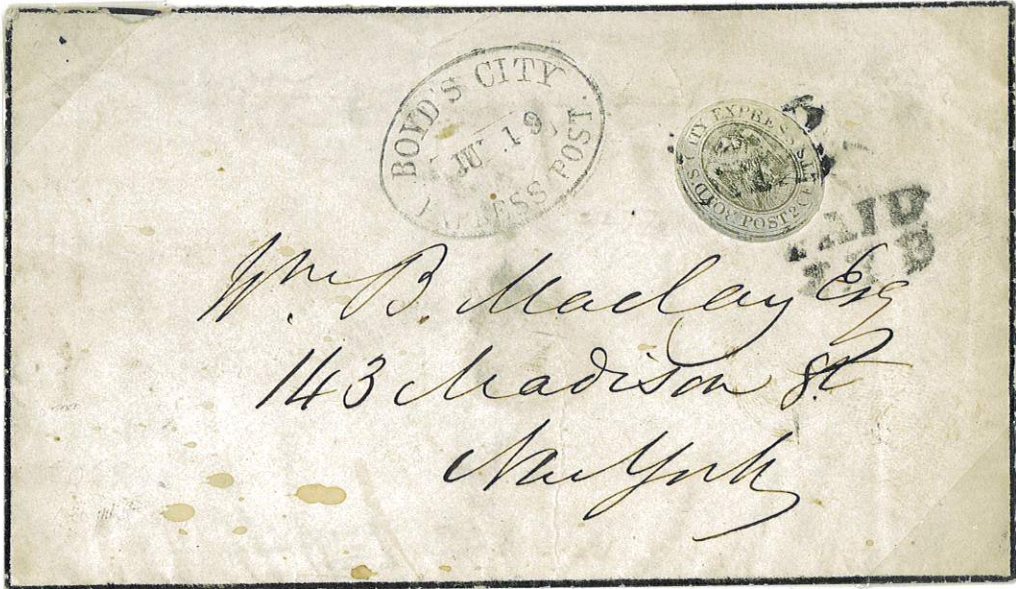 BOYD'S CITY
JU 19
EXPRESS POST.
BOYD'S CITY EXPRESS POST 2 CENTS
PAID
J.T.B
Wm. B. Maclay Esq
143 Madison St
New York